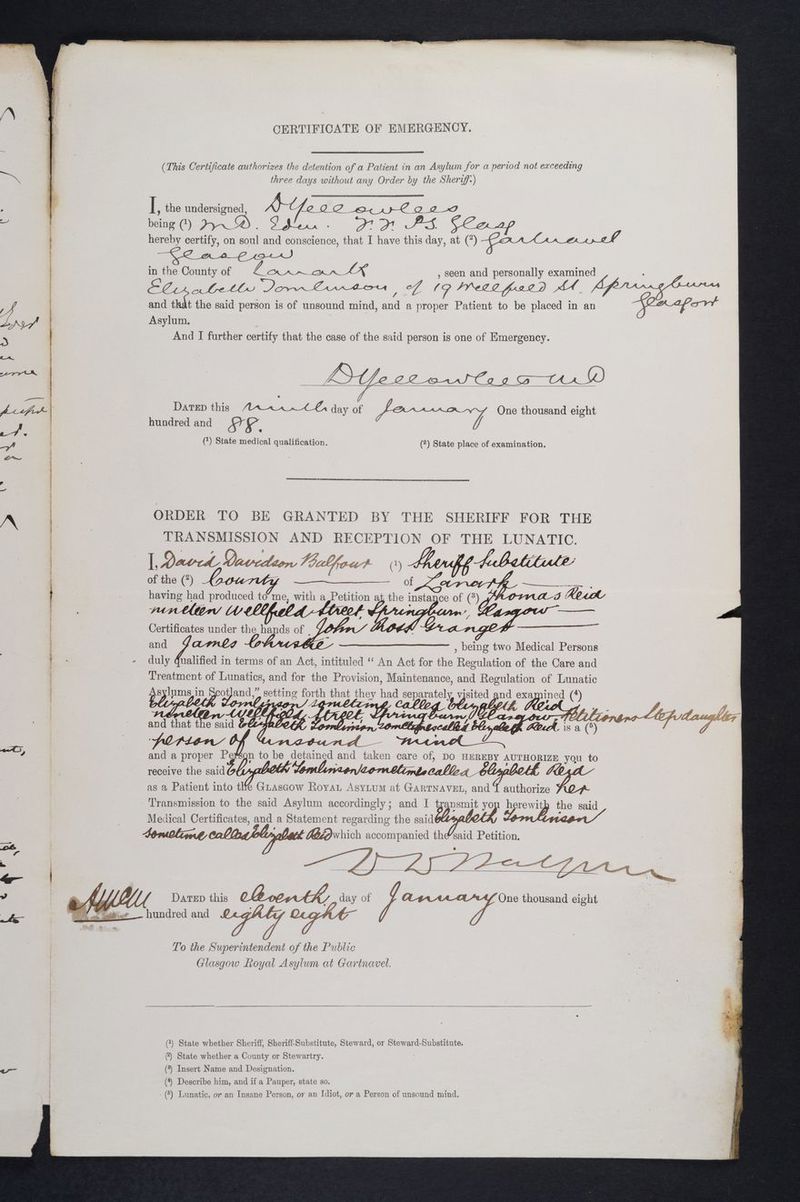 CERTIFICATE OF EMERGENCY.
(This Certificate authorizes the detention of a Patient in an Asylum for a period not exceeding
three days without any Order by the Sheriff.)
I, the undersigned, D Yellowlees
being (¹) M.D. Edin. F.F.P.S. Glasg
hereby certify, on soul and conscience, that I have this day, at (²) Gartnavel
Glasgow
in the County of Lanark , seen and personally examined
Elizabeth Tomlinson, of 19 Wellfield St. Springburn
Glasgow
and that the said person is of unsound mind, and a proper Patient to be placed in an
Asylum.
And I further certify that the case of the said person is one of Emergency.
D Yellowlees MD
DATED this ninth day of January One thousand eight
hundred and 88.
(¹) State medical qualification. (²) State place of examination.
ORDER TO BE GRANTED BY THE SHERIFF FOR THE
TRANSMISSION AND RECEPTION OF THE LUNATIC.
I, David Davidson Balfour (¹) Sheriff Substitute
of the (²) County of Lanark
having had produced to me, with a Petition at the instance of (³) Thomas Reid
nineteen Wellfield Street, Springburn, Glasgow
Certificates under the hands of John Ross Granger
and James Christie , being two Medical Persons
duly qualified in terms of an Act, intituled “ An Act for the Regulation of the Care and
Treatment of Lunatics, and for the Provision, Maintenance, and Regulation of Lunatic
Asylums in Scotland,” setting forth that they had separately visited and examined (⁴)
Elizabeth Tomlinson sometimes called Elizabeth Reid
nineteen Wellfield Street, Springburn Glasgow, Petitioners Stepdaughter
and that the said Elizabeth Tomlinson sometimes called Elizabeth Reid is a (⁵)
person of unsound mind
and a proper Person to be detained and taken care of, DO HEREBY AUTHORIZE you to
receive the said Elizabeth Tomlinson sometimes called Elizabeth Reid
as a Patient into the GLASGOW ROYAL ASYLUM at GARTNAVEL, and I authorize her
Transmission to the said Asylum accordingly; and I transmit you herewith the said
Medical Certificates, and a Statement regarding the said Elizabeth Tomlinson
sometimes called Elizabeth Reid which accompanied the said Petition.
D D Balfour
DATED this eleventh day of January One thousand eight
hundred and eighty eight
To the Superintendent of the Public
Glasgow Royal Asylum at Gartnavel.
(¹) State whether Sheriff, Sheriff-Substitute, Steward, or Steward-Substitute.
(²) State whether a County or Stewartry.
(³) Insert Name and Designation.
(⁴) Describe him, and if a Pauper, state so.
(⁵) Lunatic, or an Insane Person, or an Idiot, or a Person of unsound mind.